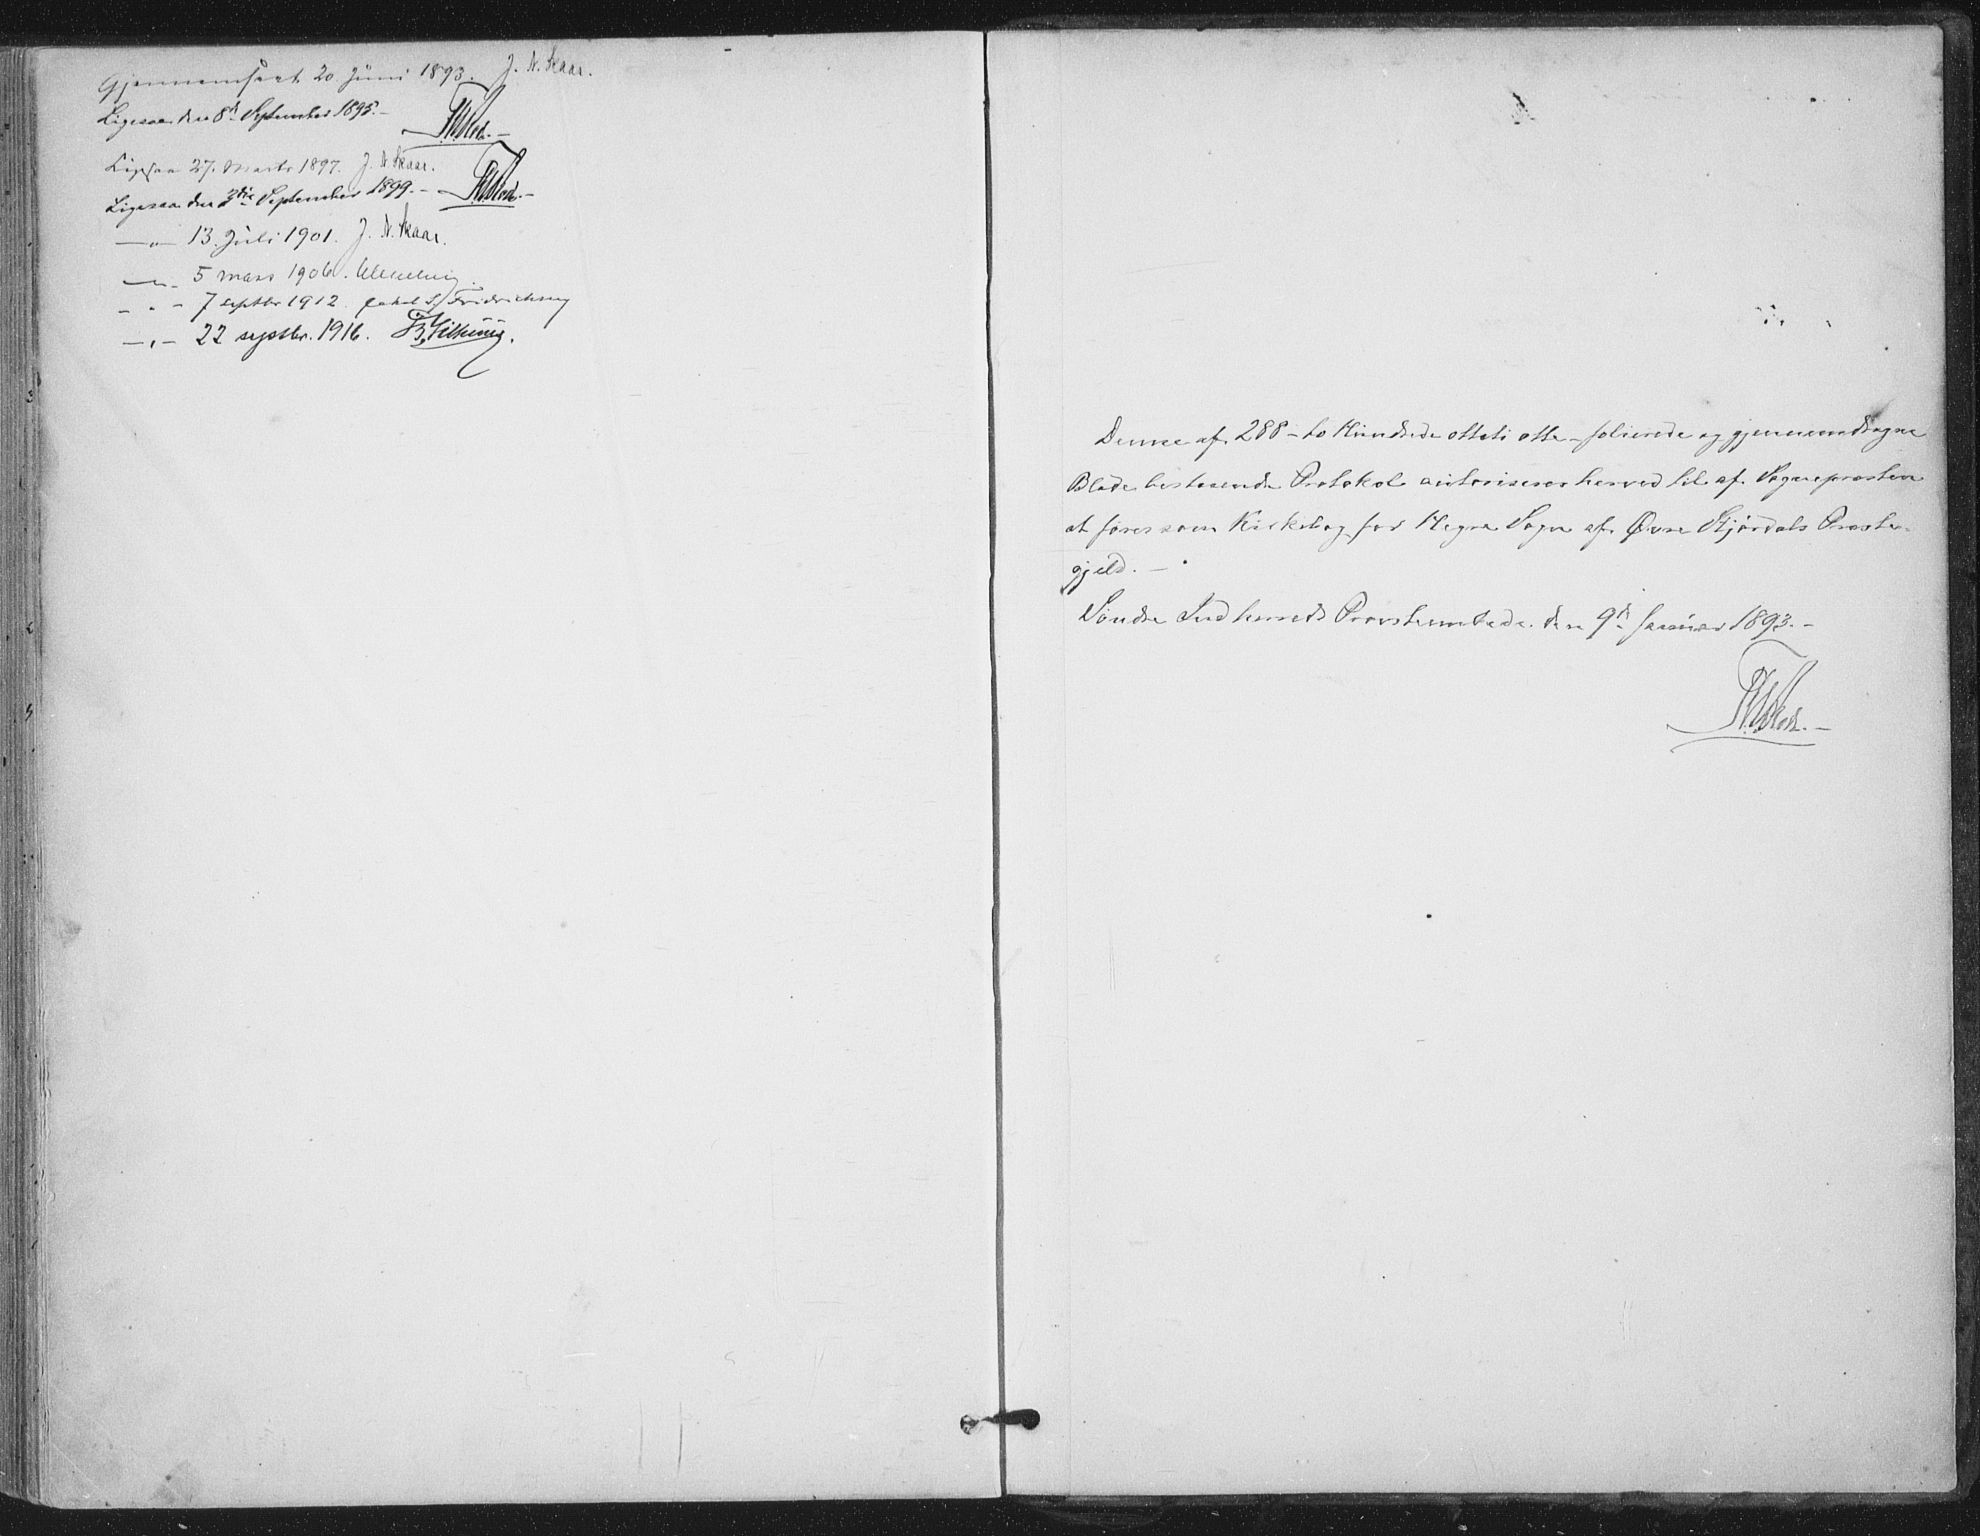 Gjennemseet 20 Juni 1893. J. N. Skaar.
Ligesaa den 8de September 1895.-
Ligesaa 27. Marts 1897. J. N. Skaar.
Ligesaa den 3die September 1899.-
—"— 13. Juli 1901. J. N. Skaar.
—"— 5 mars 1906.
- " - 7 septbr 1912. Jakob S. Fridrichsen
—"— 22 septbr. 1916.
Denne af 288 - to Hundrede otteti otte - folierede og gjennemdragne
Blade bestaaende Protokol autoriseres herved til af Sognepræsten
at føres som Kirkebog for Hegre Sogn af Øvre Stjørdals Præste-
gjeld. —
Søndre Indherreds Provstembede den 9de Januar 1893.-